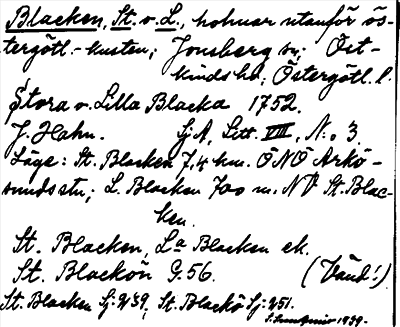 Blacken, St. o. L., holmar utanför ös-
tergötl.-kusten; Jonsberg sn; Öst-
kinds hd; Östergötl. l.
Stora o. Lilla Blacka 1752.
J. Hahn. SjA, Litt. VIII, N:o 3.
Läge: St. Blacken 7,4 km. ÖNÖ Arkö-
sunds stn; L. Blacken 700 m. NV St. Blac-
ken.
St. Blacken, La Blacken ek.
St. Blackön G. 56. (Vänd!)
St. Blacken Sj: 239, St. Blackö Sj: 251.
1939.